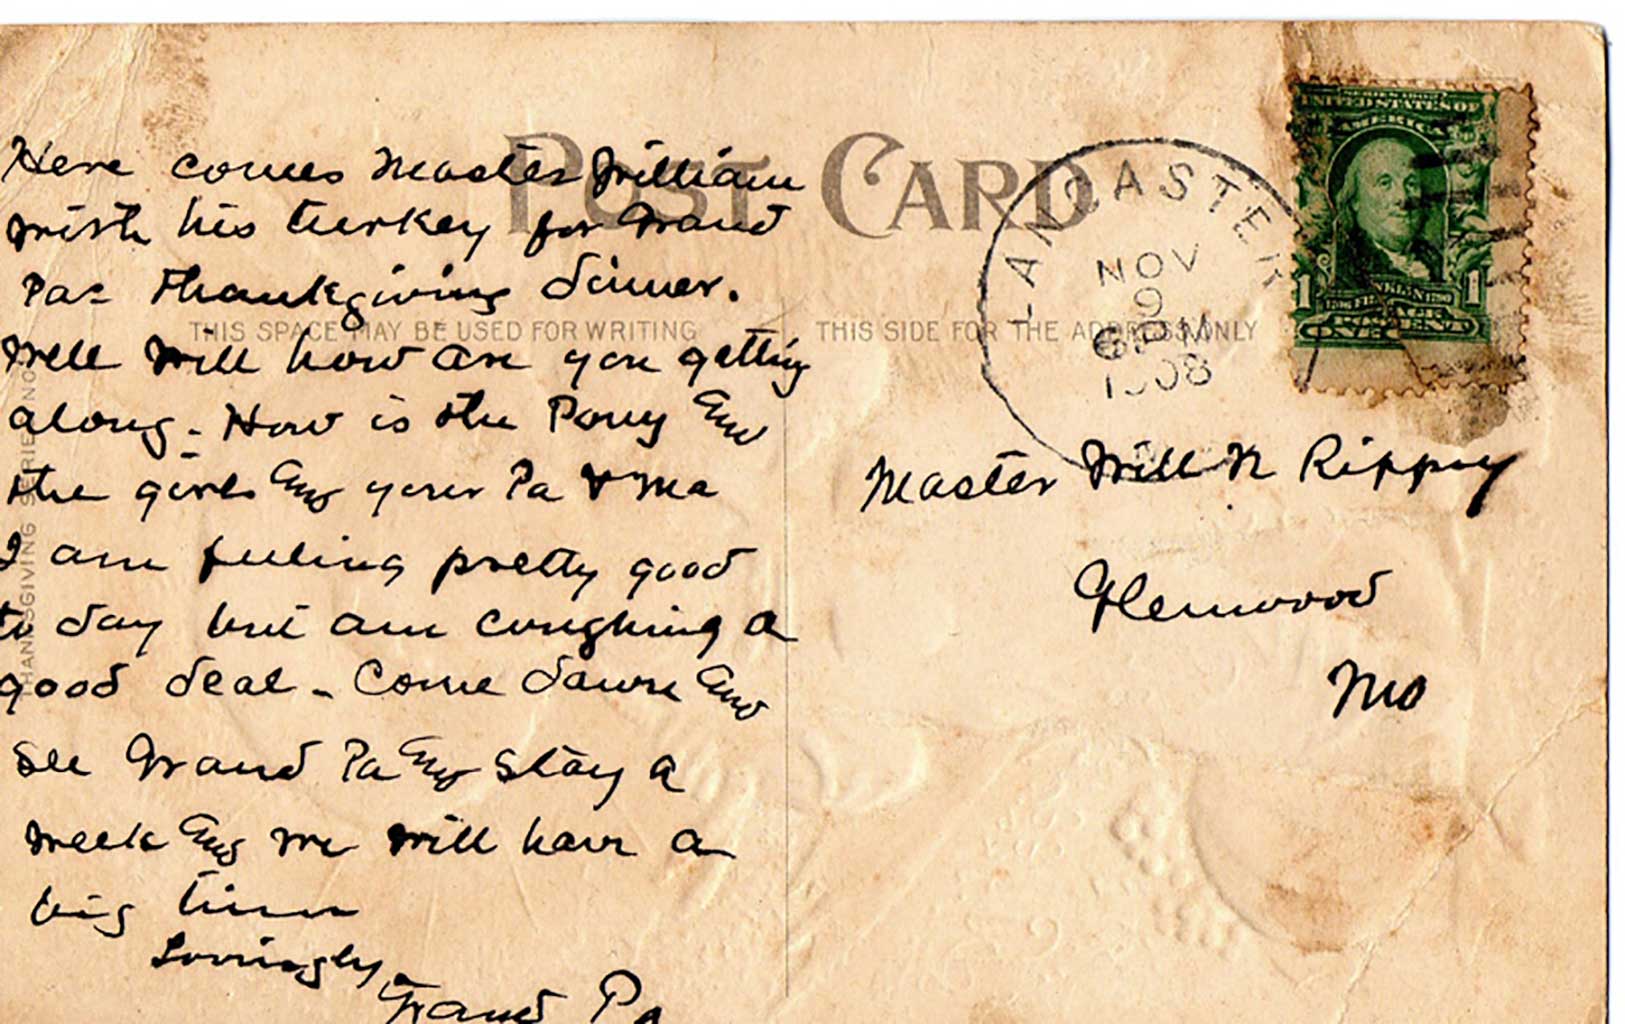 POST CARD
THIS SPACE MAY BE USED FOR WRITING
THIS SIDE FOR THE ADDRESS ONLY
Here comes Master William
with his turkey for Grand
Pas Thanksgiving dinner.
Well Will how are you getting
along. How is the Pony and
the girls and your Pa & Ma
I am feeling pretty good
to day but am coughing a
good deal - Come down and
see Grand Pa and stay a
week and we will have a
big time
Lovingly
Grand Pa
LANCASTER
NOV
9
6 PM
1908
SERIES 1902
UNITED STATES OF
AMERICA
FRANKLIN
1 1
Master Will N Rippey
Glenwood
Mo
THANKSGIVING SERIES NO